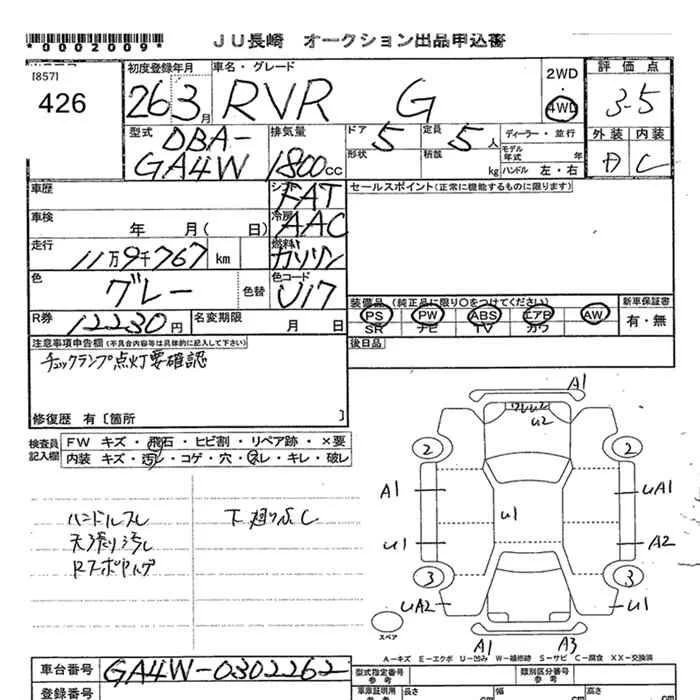 *0002009*
JU長崎 オークション出品申込書
[857]
426
初度登録年月
26 3月
車名・グレード
RVR G
2WD
4WD
評価点
3.5
型式
DBA-
GA4W
排気量
1800cc
ドア
5
形状
定員
5人
積載
kg
ディーラー・並行
モデル年式 年
ハンドル 左・右
外装 内装
D C
車歴
シフト
FAT
セールスポイント(正常に機能するものに限ります)
車検 年 月( 日)
冷房
AAC
走行
11万9千767 km
燃料
ガソリン
色
グレー
色替
色コード
U17
装備品 (純正品に限り○をつけてください)
PS PW ABS エアB AW
SR ナビ TV カワ
新車保証書
有・無
R券
12230円
名変期限 月 日
後日品
注意事項申告欄(不具合内容等は具体的に記入して下さい)
チェックランプ点灯要確認
修復歴 有[箇所 ]
検査員記入欄
FW キズ・飛石・ヒビ割・リペア跡・×要
内装 キズ・汚レ・コゲ・穴・スレ・キレ・破レ
ハンドルスレ
天張り汚レ
下廻りサビ
A1
U2
2 2
A1 UA1
U1
U1 A2
3 3
UA2 U1
スペア
A1 A3
A-キズ E-エクボ U-凹み W-補修跡 S-サビ C-腐食 XX-交換済
車台番号
GA4W-0302262
登録番号
型式指定番号
参考
類別区分番号
参考
車庫証明用
参考
長さ cm
幅 cm
高さ cm